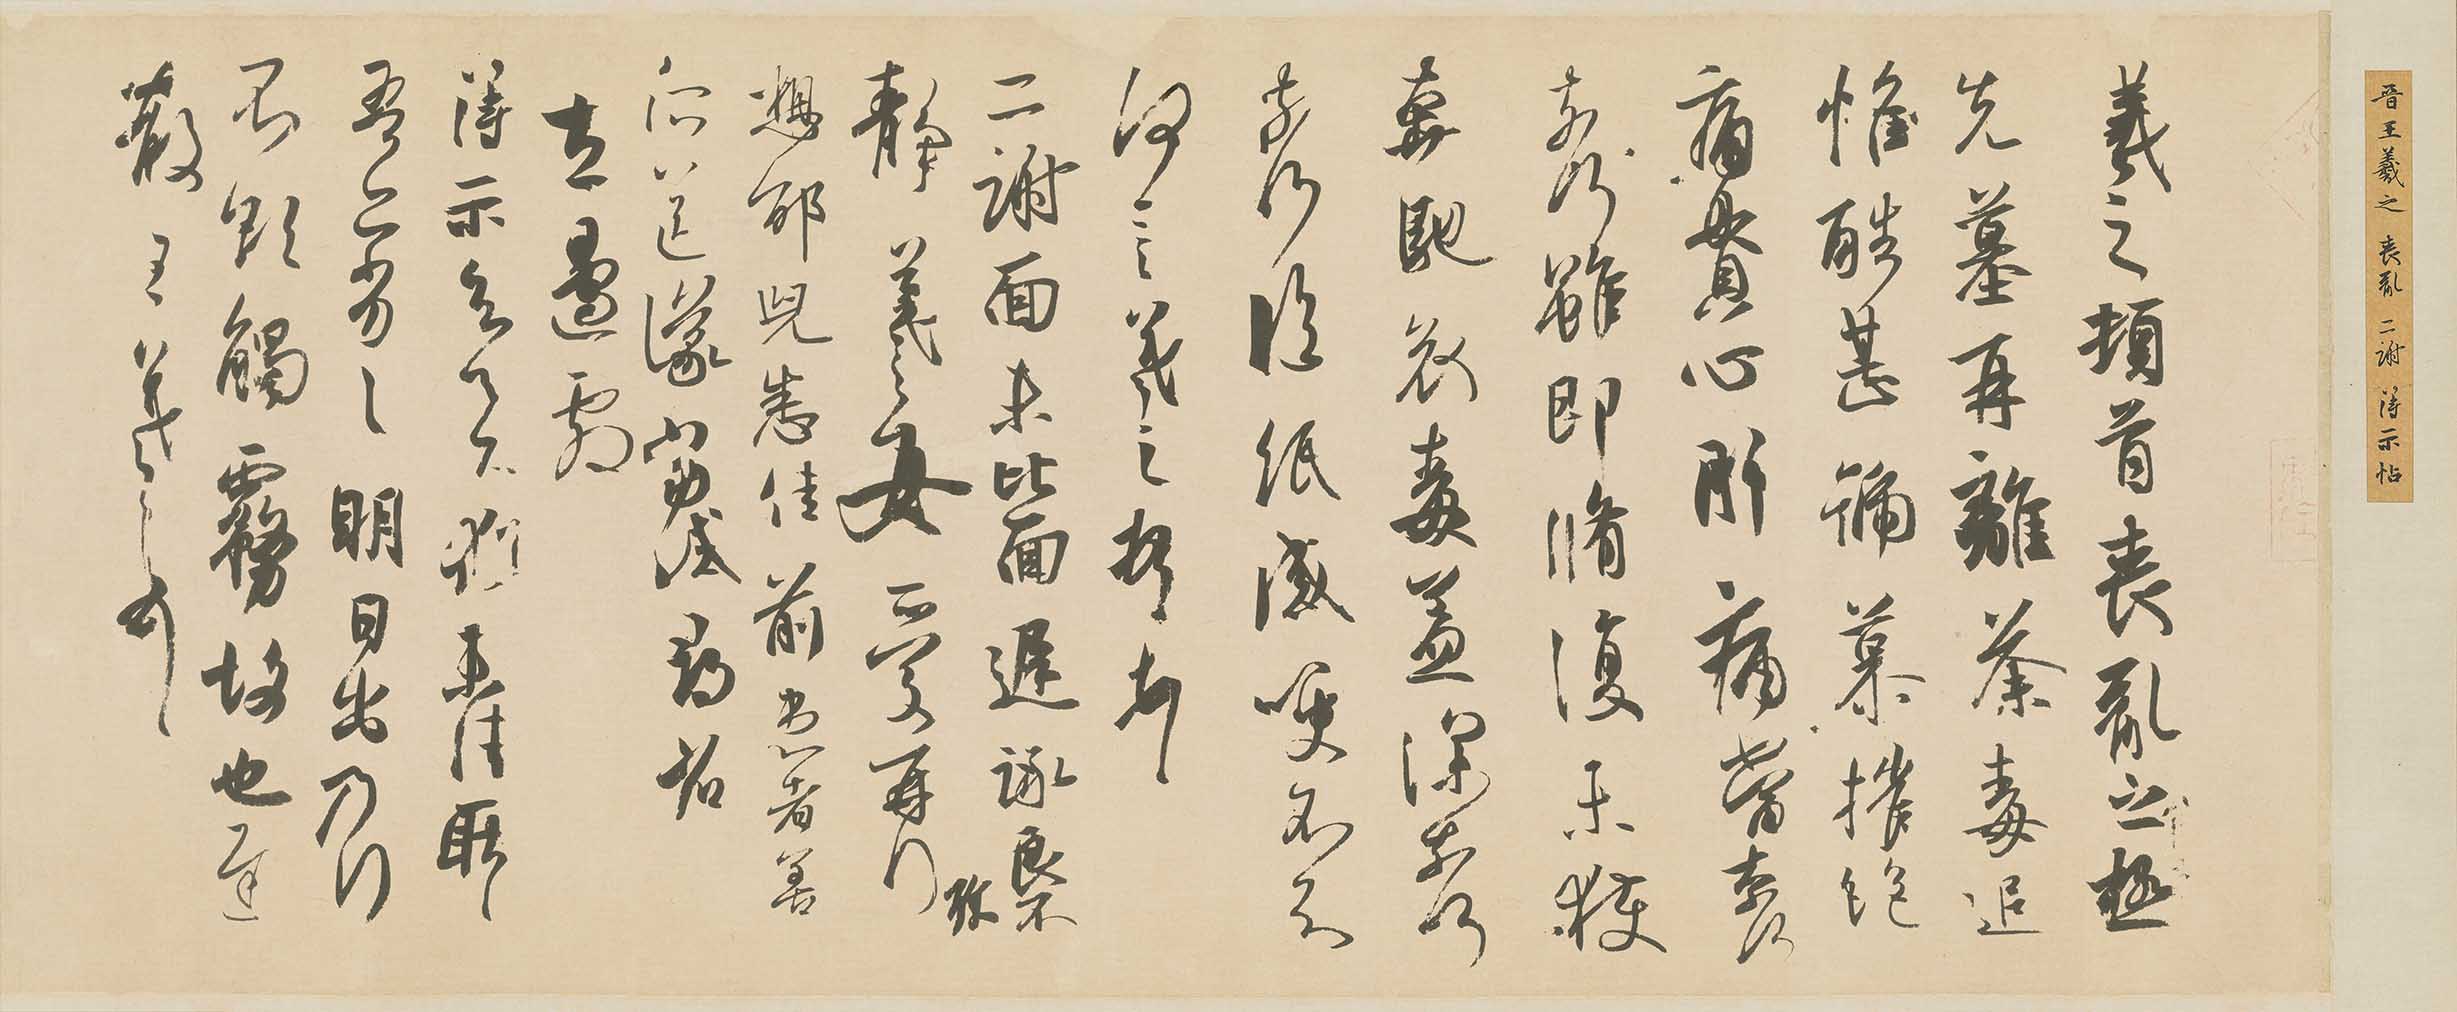 晉王羲之 喪亂 二謝 得示帖
羲之頓首喪亂之極
先墓再離荼毒追
惟酷甚號慕摧絕
痛貫心肝痛當柰何
柰何雖即脩復未獲
奔馳哀毒益深柰何
柰何臨紙感哽不知
何言羲之頓首頓首
二謝面未比面遲詠良不
靜羲之女愛再拜
想邵兒悉佳前患者善
所送議當試尋省
左邊劇
得示知足下猶未佳耿耿
吾亦劣劣明日出乃行
不欲觸霧故也遲
散王羲之頓首